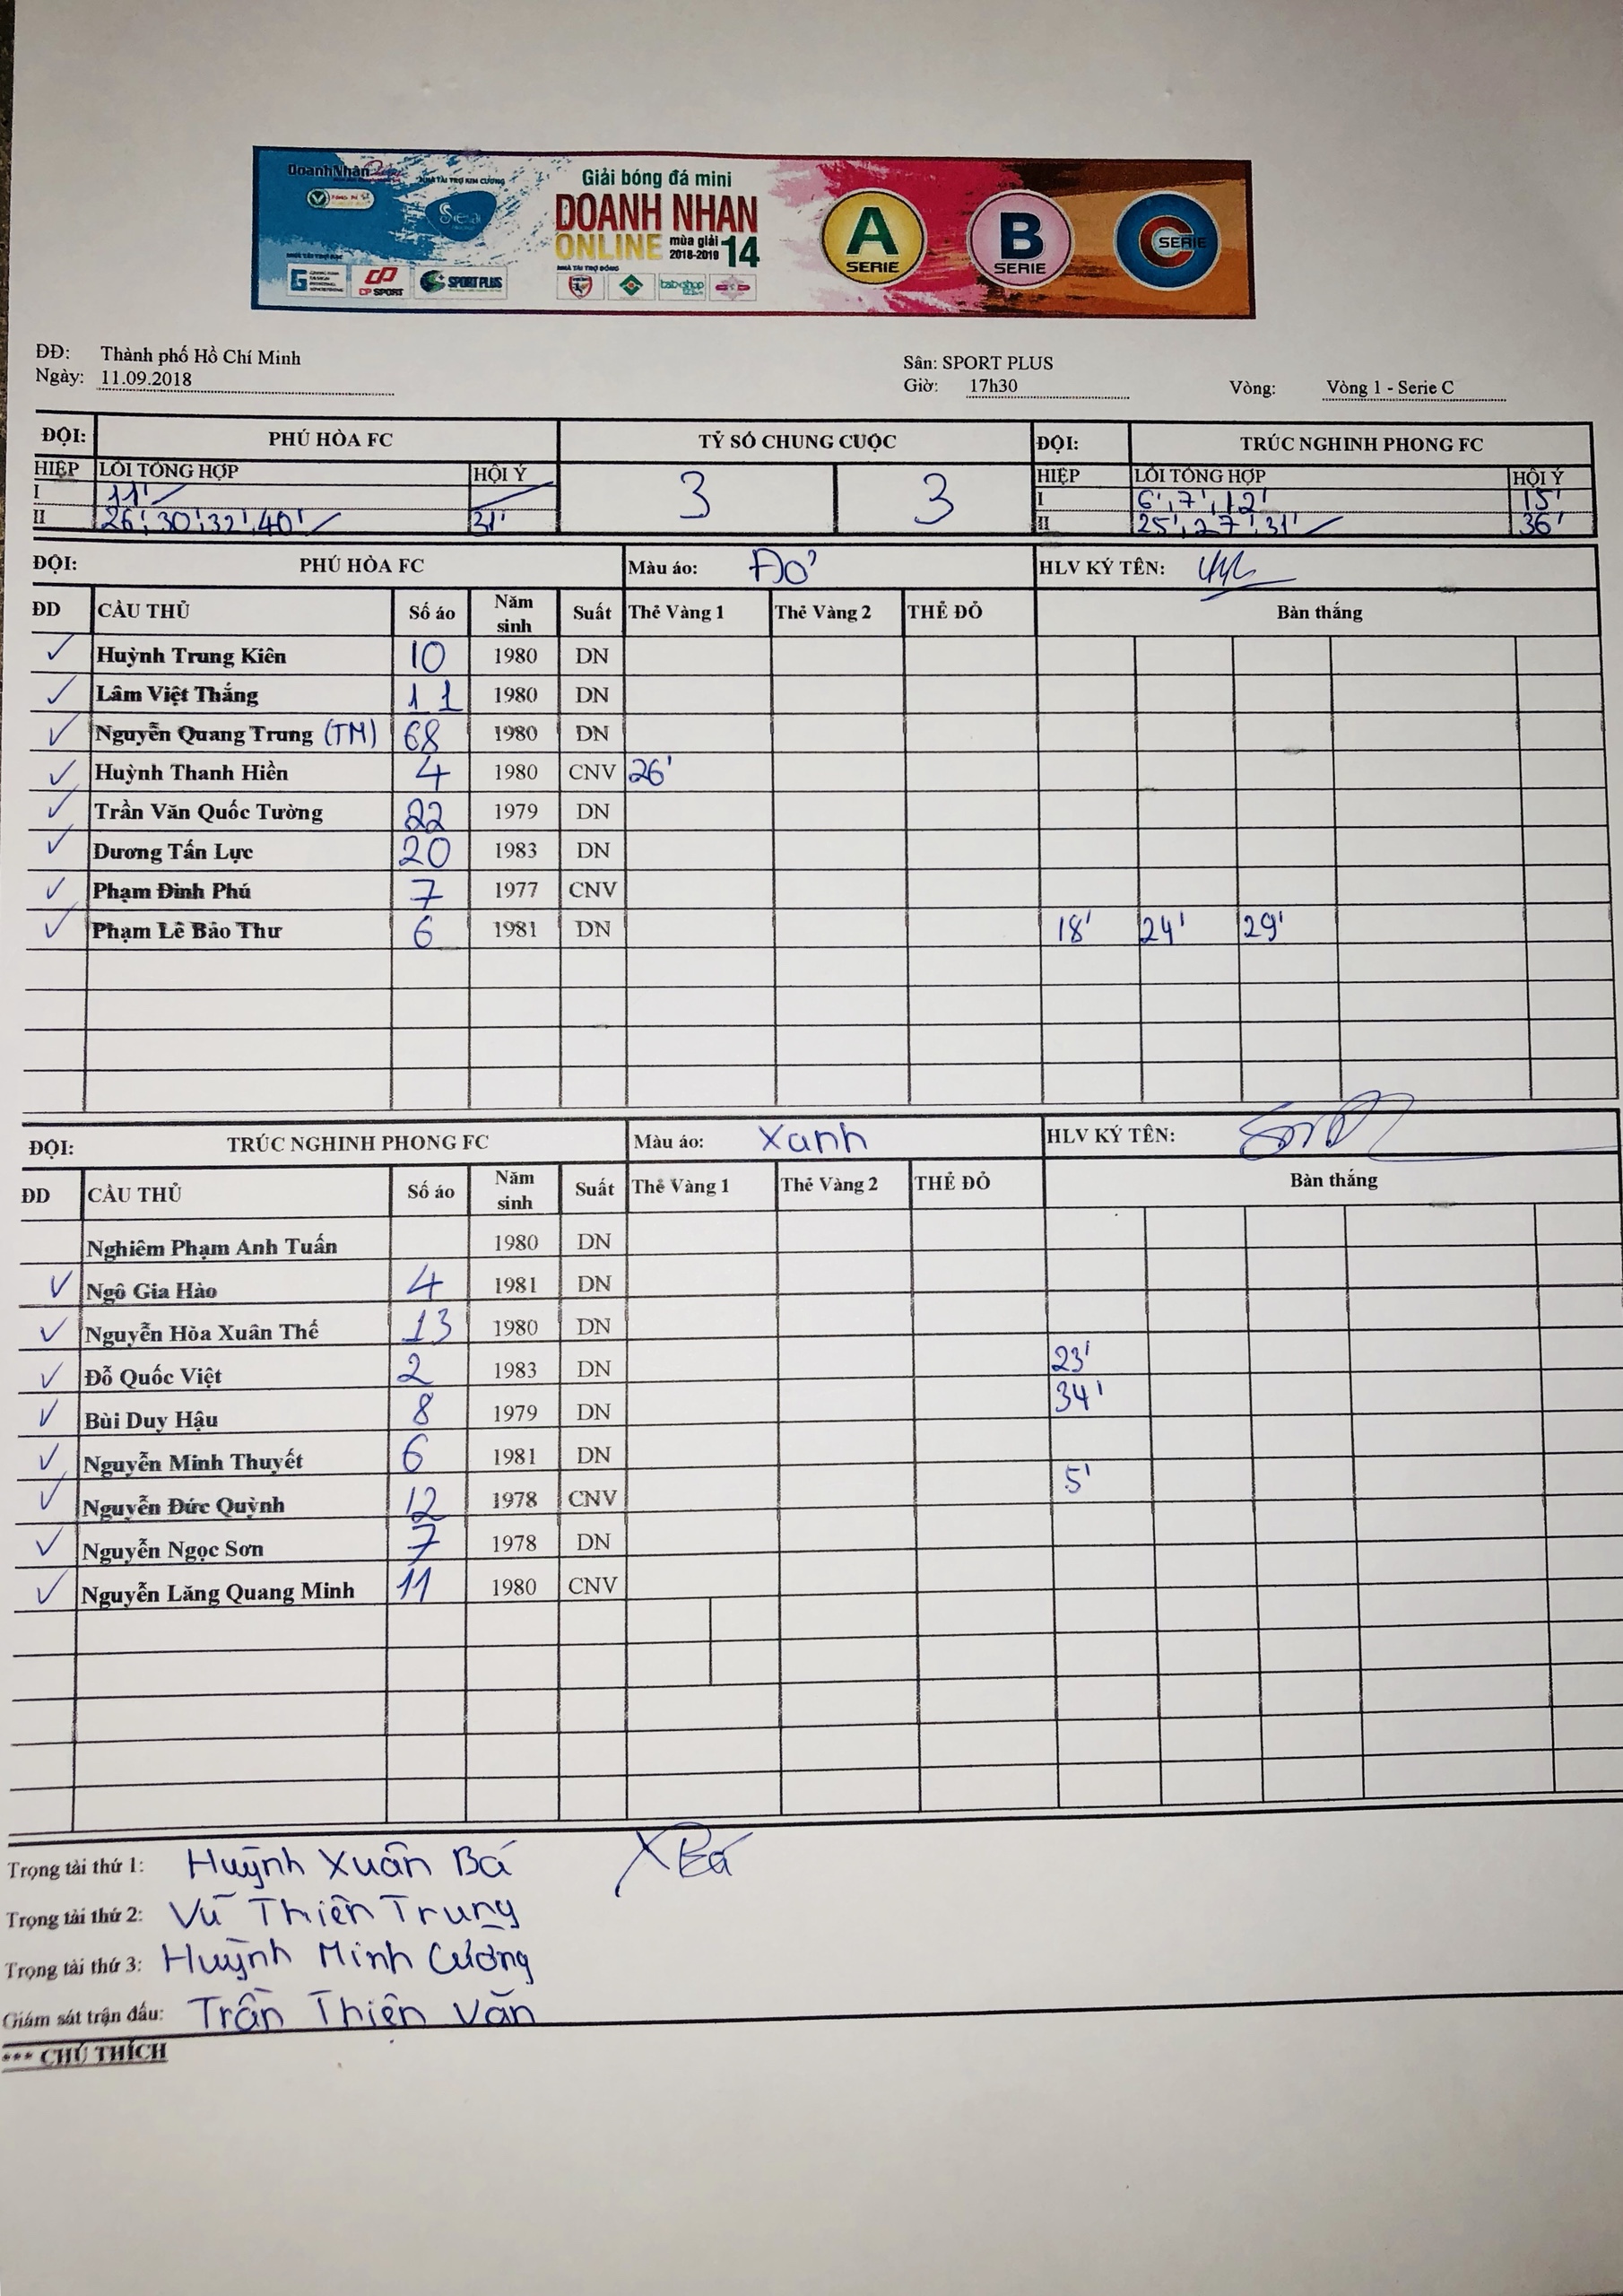 DoanhNhân
NHÀ TÀI TRỢ KIM CƯƠNG
Sea
Giải bóng đá mini
DOANH NHAN
ONLINE mùa giải 2018-2019 14
NHÀ TÀI TRỢ ĐỒNG
CP SPORT
SPORT PLUS
A SERIE
B SERIE
C SERIE
ĐĐ: Thành phố Hồ Chí Minh
Sân: SPORT PLUS
Ngày: 11.09.2018
Giờ: 17h30
Vòng: Vòng 1 - Serie C
ĐỘI: PHÚ HÒA FC TỶ SỐ CHUNG CUỘC ĐỘI: TRÚC NGHINH PHONG FC
HIỆP LỖI TỔNG HỢP HỘI Ý 3 3 HIỆP LỖI TỔNG HỢP HỘI Ý
I 11' I 6', 7', 12' 15'
II 26', 30', 32', 40' 31' II 25', 27', 31' 36'
ĐỘI: PHÚ HÒA FC Màu áo: Đỏ HLV KÝ TÊN:
ĐD CẦU THỦ Số áo Năm sinh Suất Thẻ Vàng 1 Thẻ Vàng 2 THẺ ĐỎ Bàn thắng
✓ Huỳnh Trung Kiên 10 1980 DN
✓ Lâm Việt Thắng 11 1980 DN
✓ Nguyễn Quang Trung (TM) 68 1980 DN
✓ Huỳnh Thanh Hiền 4 1980 CNV 26'
✓ Trần Văn Quốc Tường 22 1979 DN
✓ Dương Tấn Lực 20 1983 DN
✓ Phạm Đình Phú 7 1977 CNV
✓ Phạm Lê Bảo Thư 6 1981 DN 18' 24' 29'
ĐỘI: TRÚC NGHINH PHONG FC Màu áo: Xanh HLV KÝ TÊN:
ĐD CẦU THỦ Số áo Năm sinh Suất Thẻ Vàng 1 Thẻ Vàng 2 THẺ ĐỎ Bàn thắng
Nghiêm Phạm Anh Tuấn 1980 DN
✓ Ngô Gia Hào 4 1981 DN
✓ Nguyễn Hòa Xuân Thế 13 1980 DN
✓ Đỗ Quốc Việt 2 1983 DN 23'
✓ Bùi Duy Hậu 8 1979 DN 34'
✓ Nguyễn Minh Thuyết 6 1981 DN
✓ Nguyễn Đức Quỳnh 12 1978 CNV 5'
✓ Nguyễn Ngọc Sơn 7 1978 DN
✓ Nguyễn Lăng Quang Minh 11 1980 CNV
Trọng tài thứ 1: Huỳnh Xuân Bá XBá
Trọng tài thứ 2: Vũ Thiên Trung
Trọng tài thứ 3: Huỳnh Minh Cường
Giám sát trận đấu: Trần Thiên Văn
*** CHÚ THÍCH